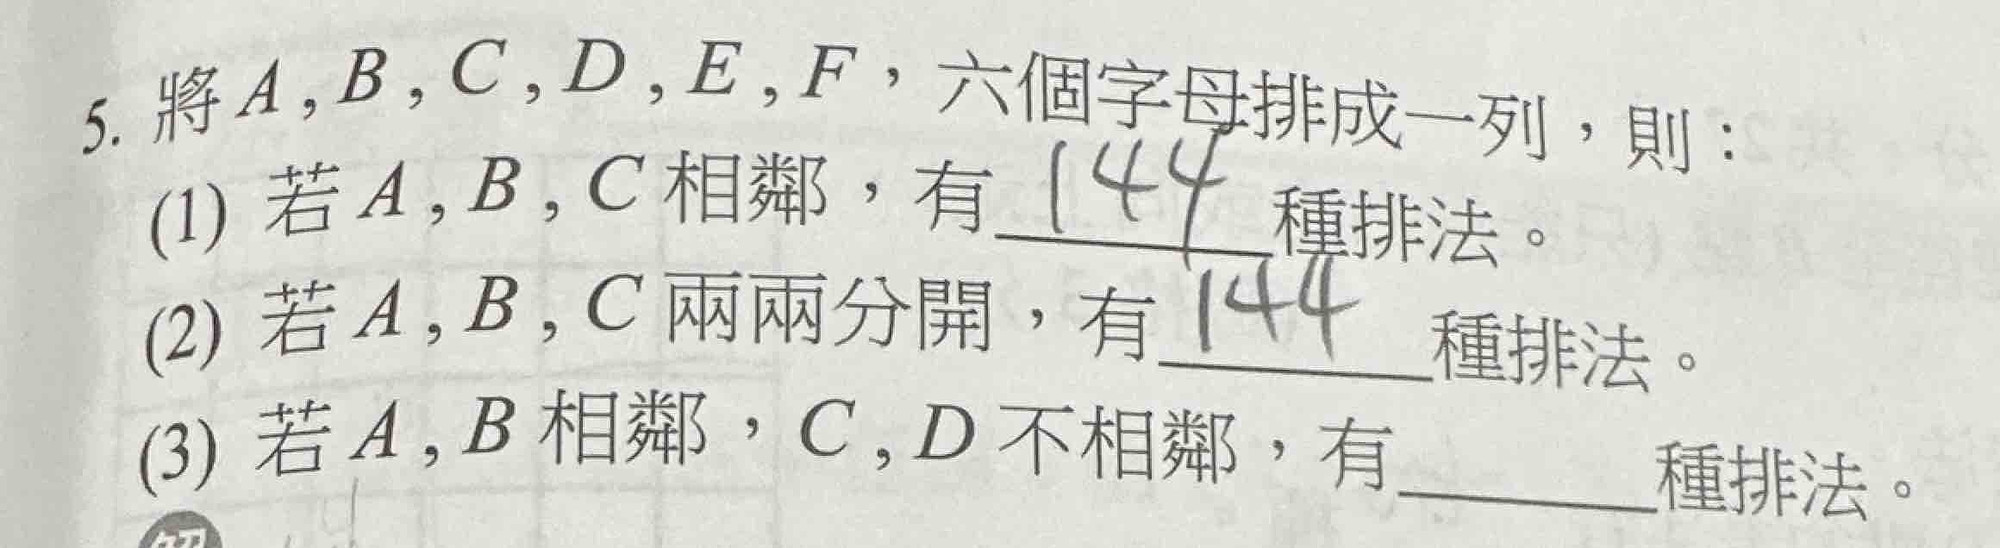 5. 將A,B,C,D,E,F,六個字母排成一列,則:
(1) 若A,B,C相鄰,有144種排法。
(2) 若A,B,C兩兩分開,有144種排法。
(3) 若A,B相鄰,C,D不相鄰,有______種排法。